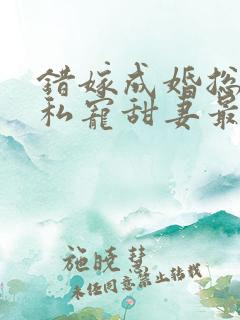 错嫁成婚总
私宠甜妻最
施晓慧
未经同意禁止转载